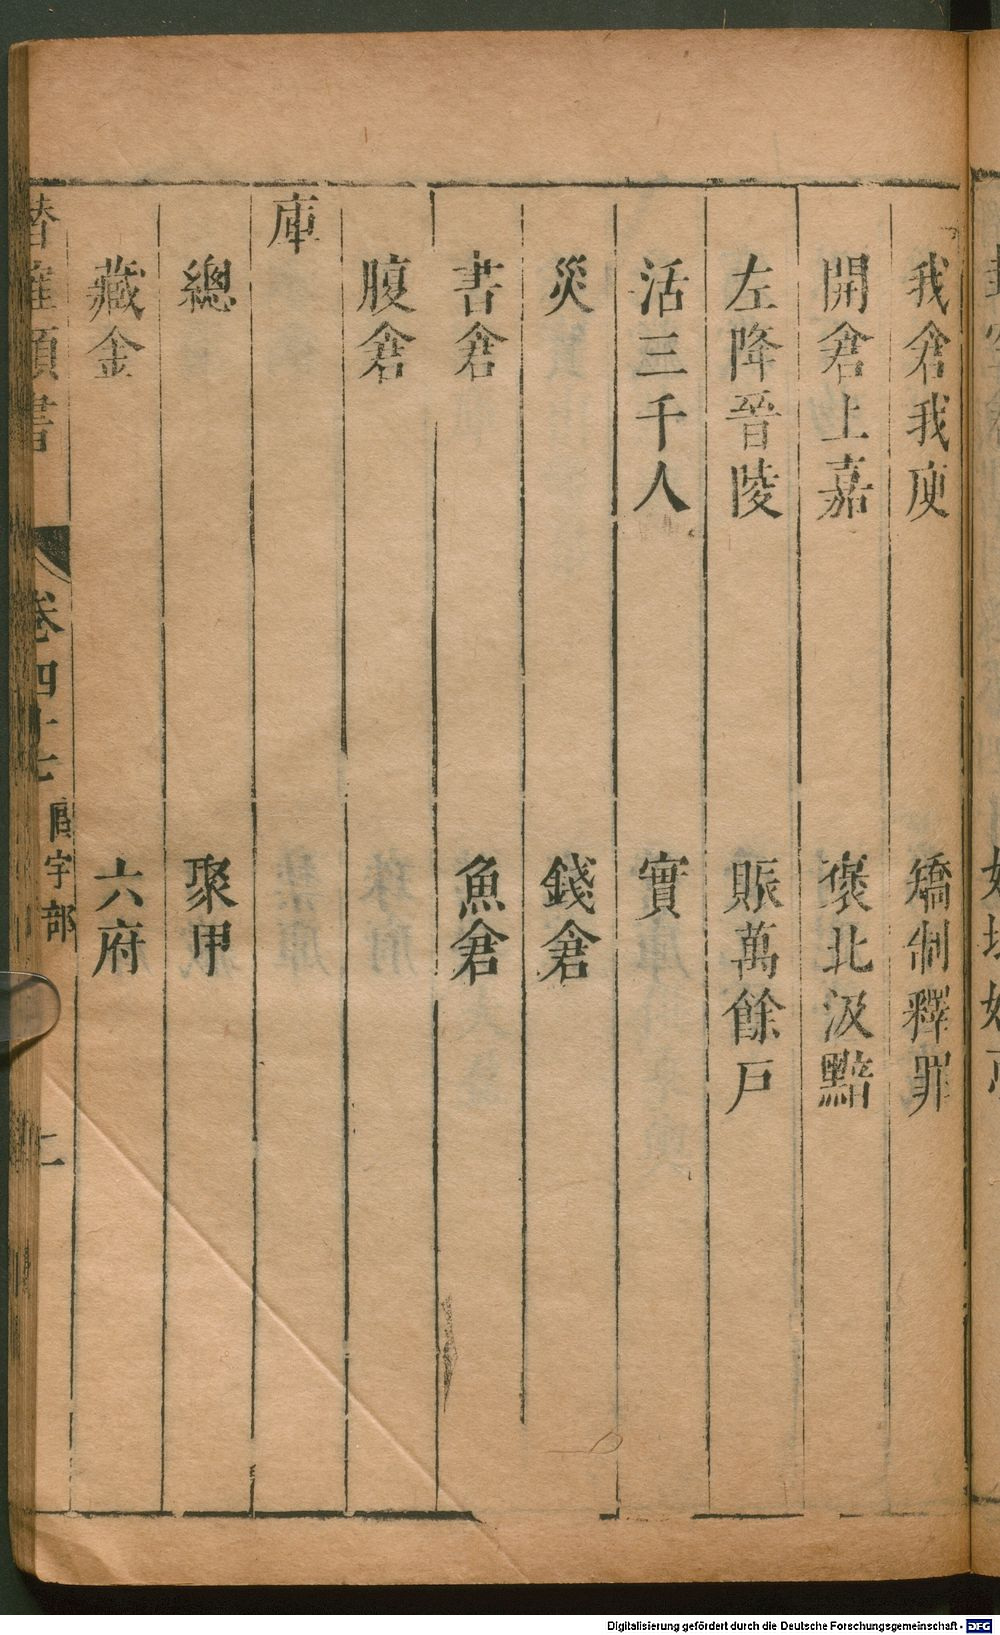 我倉我庾　矯制釋罪
開倉上嘉　褒北汲黯
左降晉陵　賑萬餘戸
活三千人　實
災　錢倉
書倉　魚倉
腹倉
庫
總　聚甲
藏金　六府
類書　卷四十七　宇部　二
Digitalisierung gefördert durch die Deutsche Forschungsgemeinschaft - DFG